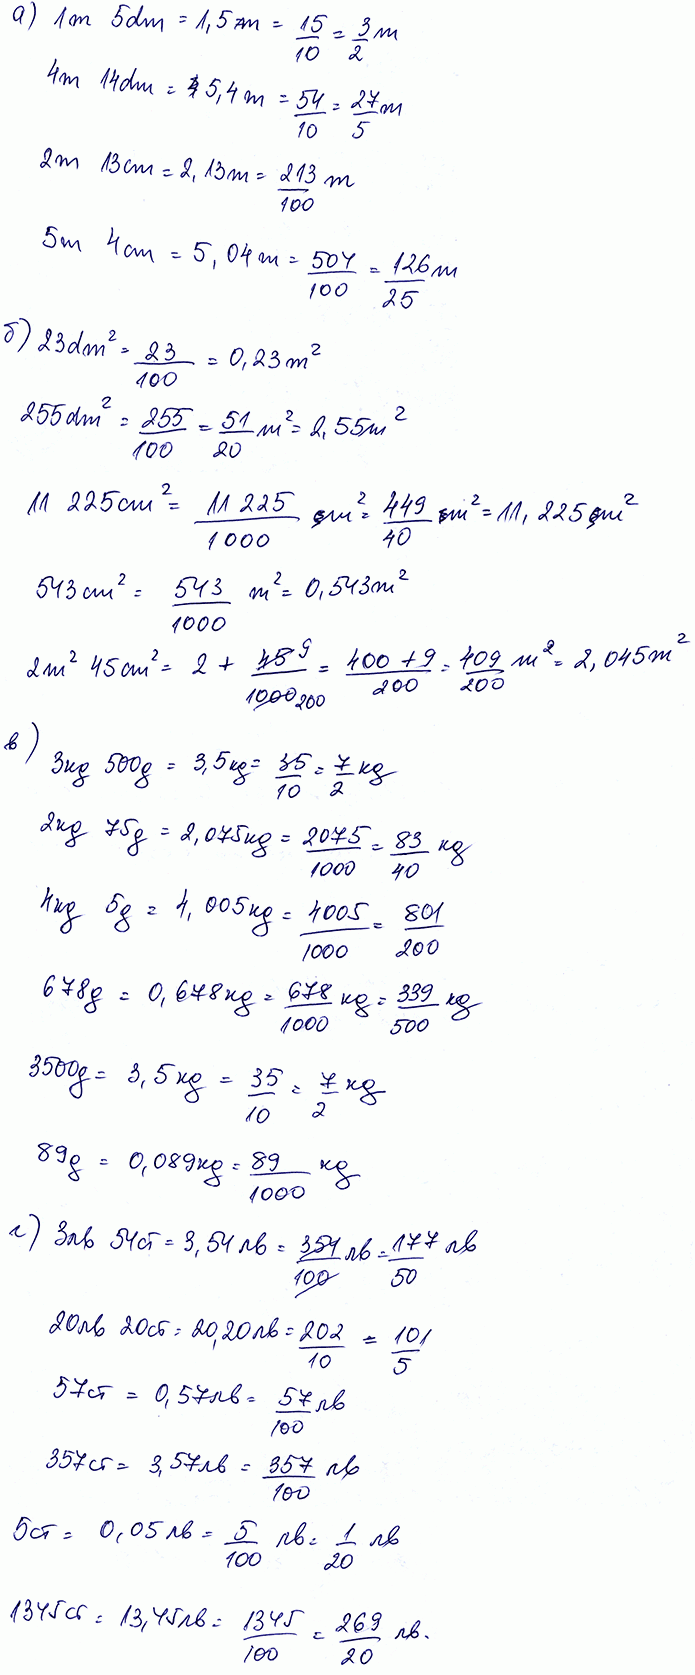 а) 1m 5dm = 1,5m = 15/10 = 3/2 m
4m 14dm = 5,4m = 54/10 = 27/5 m
2m 13cm = 2,13m = 213/100 m
5m 4cm = 5,04m = 504/100 = 126/25 m
б) 23dm² = 23/100 = 0,23m²
255dm² = 255/100 = 51/20 m² = 2,55m²
11 225cm² = 11 225/1000 m² = 449/40 m² = 11,225m²
543cm² = 543/1000 m² = 0,543m²
2m² 45cm² = 2 + 45 9/1000 200 = 400+9/200 = 409/200 m² = 2,045m²
в)
3kg 500g = 3,5kg = 35/10 = 7/2 kg
2kg 75g = 2,075kg = 2075/1000 = 83/40 kg
4kg 5g = 4,005kg = 4005/1000 = 801/200
678g = 0,678kg = 678/1000 kg = 339/500 kg
3500g = 3,5kg = 35/10 = 7/2 kg
89g = 0,089kg = 89/1000 kg
г) 3лв 54ст = 3,54лв = 354/100 лв = 177/50 лв
20лв 20ст = 20,20лв = 202/10 = 101/5
57ст = 0,57лв = 57/100 лв
357ст = 3,57лв = 357/100 лв
5ст = 0,05лв = 5/100 лв = 1/20 лв
1345ст = 13,45лв = 1345/100 = 269/20 лв.